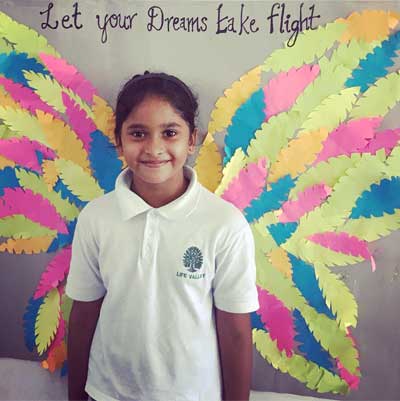 Let your Dreams take flight
LIFE VALLEY